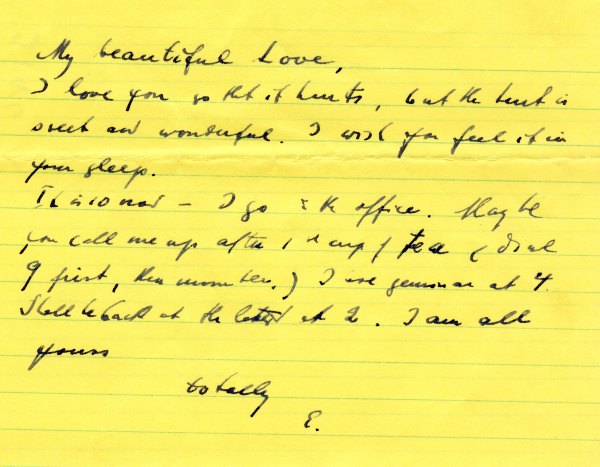 My beautiful Love,
I love you so that it hurts, but the hurt is
sweet and wonderful. I wish you feel it in
your sleep.
It is 10 now – I go to the office. Maybe
you call me up after 1st cup of tea (dial
9 first, then number.) I have seminar at 4.
Shall be back at the latest at 2. I am all
yours
totally
E.